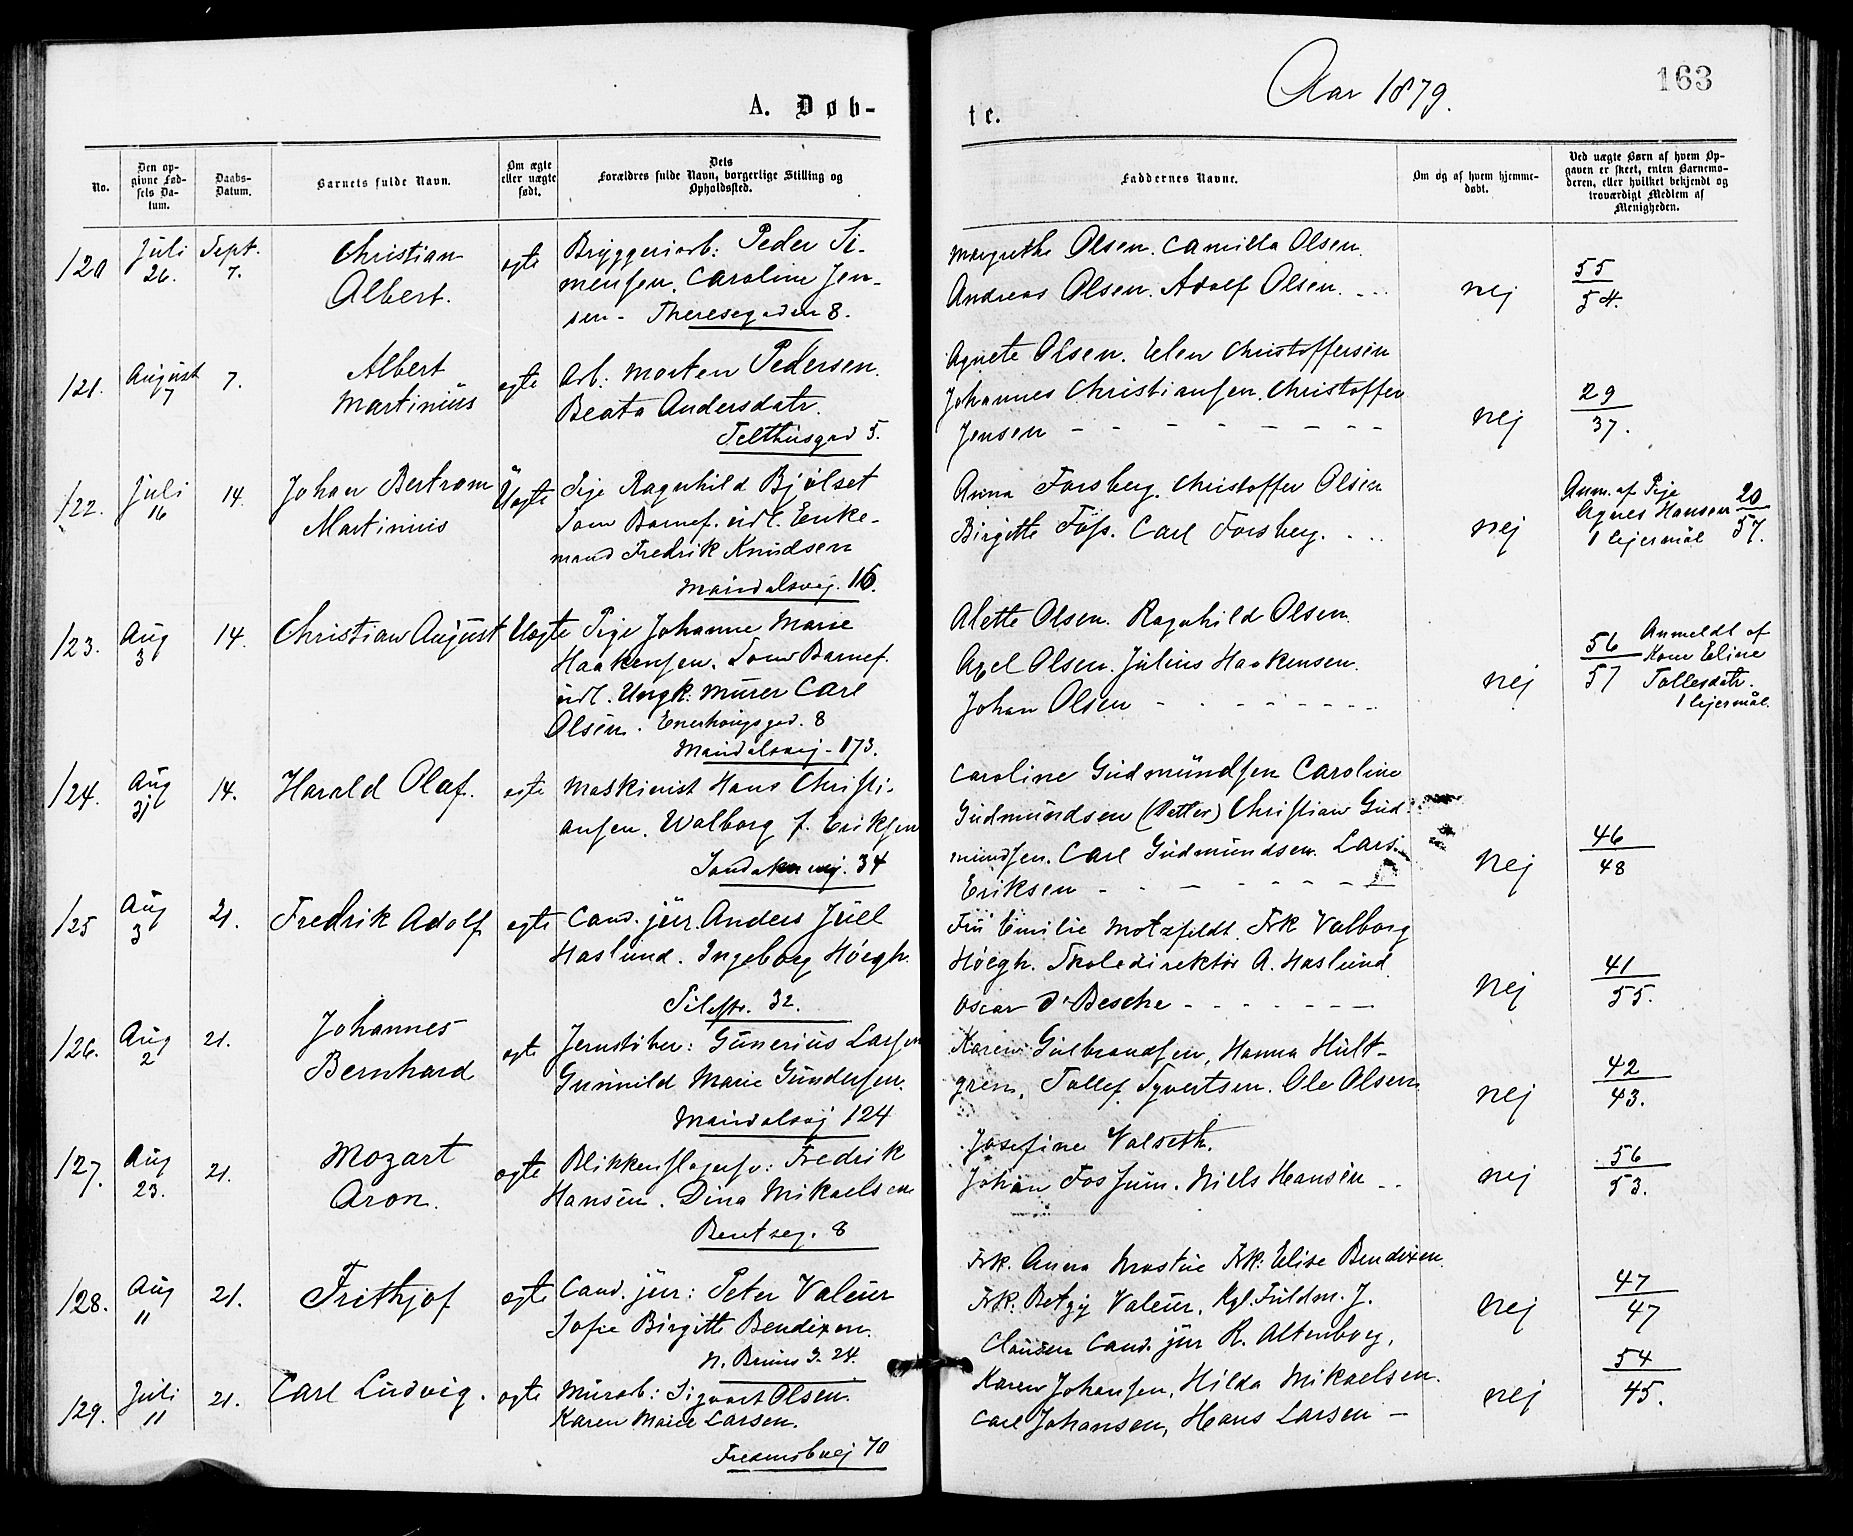 A. Døb-
te.
Aar 1879.
163
No.
Den op-
givne Fød-
sels Da-
tum.
Daabs-
Datum.
Barnets fulde Navn.
Om ægte
eller uægte
født.
Dets
Forældres fulde Navn, borgerlige Stilling og
Opholdssted.
Faddernes Navne.
Om og af hvem hjemme-
døbt.
Ved uægte Børn af hvem Op-
gaven er skeet, enten Barnemo-
deren, eller hvilket bekjendt og
troværdigt Medlem af
Menigheden.
120 Juli 26. Sept. 7.
Christian
Albert.
egte
Bryggeriarb: Peder Si-
mensen, Caroline Jen-
sen - Theresegaden 8.
Margrethe Olsen. Camilla Olsen.
Andreas Olsen. Adolf Olsen. - - -
nej
55
54.
121. August 7 7.
Albert
Martinius
egte
Arb: Morten Pedersen.
Beata Andersdatr.
Telthusgad 5.
Agnete Olsen. Elen Christoffersen
Johannes Christiansen. Christoffer
Jensen - - - - - - - -
nej
29
37.
122. Juli 16 14
Johan Bertram
Martinius
Uegte
Pige Ragnhild Bjølset
Som Barnef. udl. Enke-
mand Fredrik Knudsen
Maridalsvej. 16.
Anna Forsberg. Christoffer Olsen
Birgitte Foss. Carl Forsberg. - - -
nej
Anm. af Pige
Agnes Hansen
1 lejermål
20
57.
123. Aug 3 14.
Christian August
Uegte
Pige Johanne Marie
Haakensen. Som Barnef.
udl. Ungk: Murer Carl
Olsen. Enerhougsgad. 8
Maridalsvej - 173.
Alette Olsen. Ragnhild Olsen.
Axel Olsen. Julius Haakensen.
Johan Olsen - - - - - - -
nej
56
57
Anmeldt af
Kone Eline
Tollesdatr.
1 lejermål.
124. Aug 31 14.
Harald Olaf.
egte
Maskinist Hans Christi-
ansen. Walborg f. Eriksen
Sandakervej. 34
Caroline Gudmundsen Caroline
Gudmundsen (Datter) Christian Gud-
mundsen. Carl Gudmundsen. Lars
Eriksen - - - - - - -
nej
46
48
125 Aug 3 21.
Fredrik Adolf
egte
Cand. jur. Anders Juel
Haslund. Ingeborg Høegh.
Pilestr. 32.
Fru Emilie Motzfeldt. Frk Valborg
Høegh. Skoledirektør A. Haslund
Oscar D'Besche - - - - - -
nej
41
55.
126. Aug 2 21.
Johannes
Bernhard
egte
Jernstøber: Gunerius Larsen
Gunnild Marie Gundersen.
Maridalsvej 124
Karen Gulbrandsen, Hanna Hult-
gren, Tollef Syvertsen. Ole Olsen
nej
42
43.
127. Aug 23. 21.
Mozart
Aron.
egte
Blikkenslagersv: Fredrik
Hansen. Dina Mikaelsen
Bentseg. 8
Josefine Valseth.
Johan Fossum. Niels Hansen - -
nej
56
53.
128. Aug 11 21.
Frithjof
egte
Cand. jur: Peter Valeur
Sofie Birgitte Bendixen.
N. Bruns G. 24.
Frk. Anna Mostue Frk: Elise Bendixen
Frk. Betzy Valeur, Kgl. Fuldm. J.
Clausen Cand. jur R. Altenborg,
nej
47
47
129. Juli 11 21.
Carl Ludvig.
egte
Murab: Sigvart Olsen.
Karen Marie Larsen.
Fredensbvej 70
Karen Johansen, Hilda Mikaelsen.
Carl Johansen, Hans Larsen -
nej
54
45.